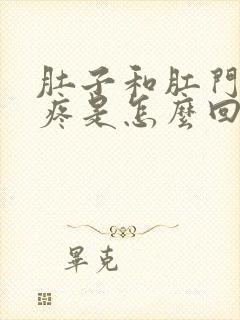 肚子和肛門
疼是怎麼回
畢克